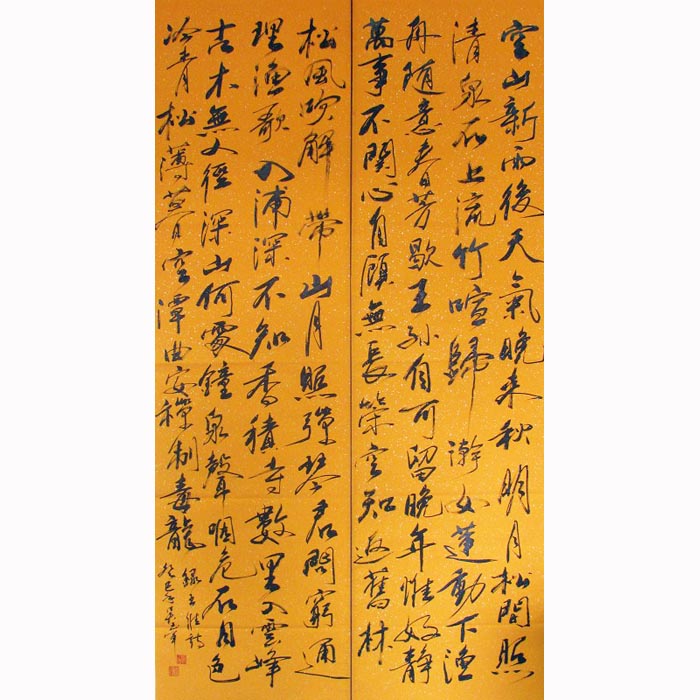 空山新雨後天氣晚来秋明月松間照
清泉石上流竹喧歸澣女蓮動下漁
舟隨意春芳歇王孫自可留晚年惟好靜
萬事不關心自顧無長策空知返舊林
松風吹解帶山月照彈琴君問窮通
理漁歌入浦深不知香積寺數里入雲峰
古木無人徑深山何處鐘泉聲咽危石日色
冷青松薄暮空潭曲安禪制毒龍
錄王維詩
癸巳